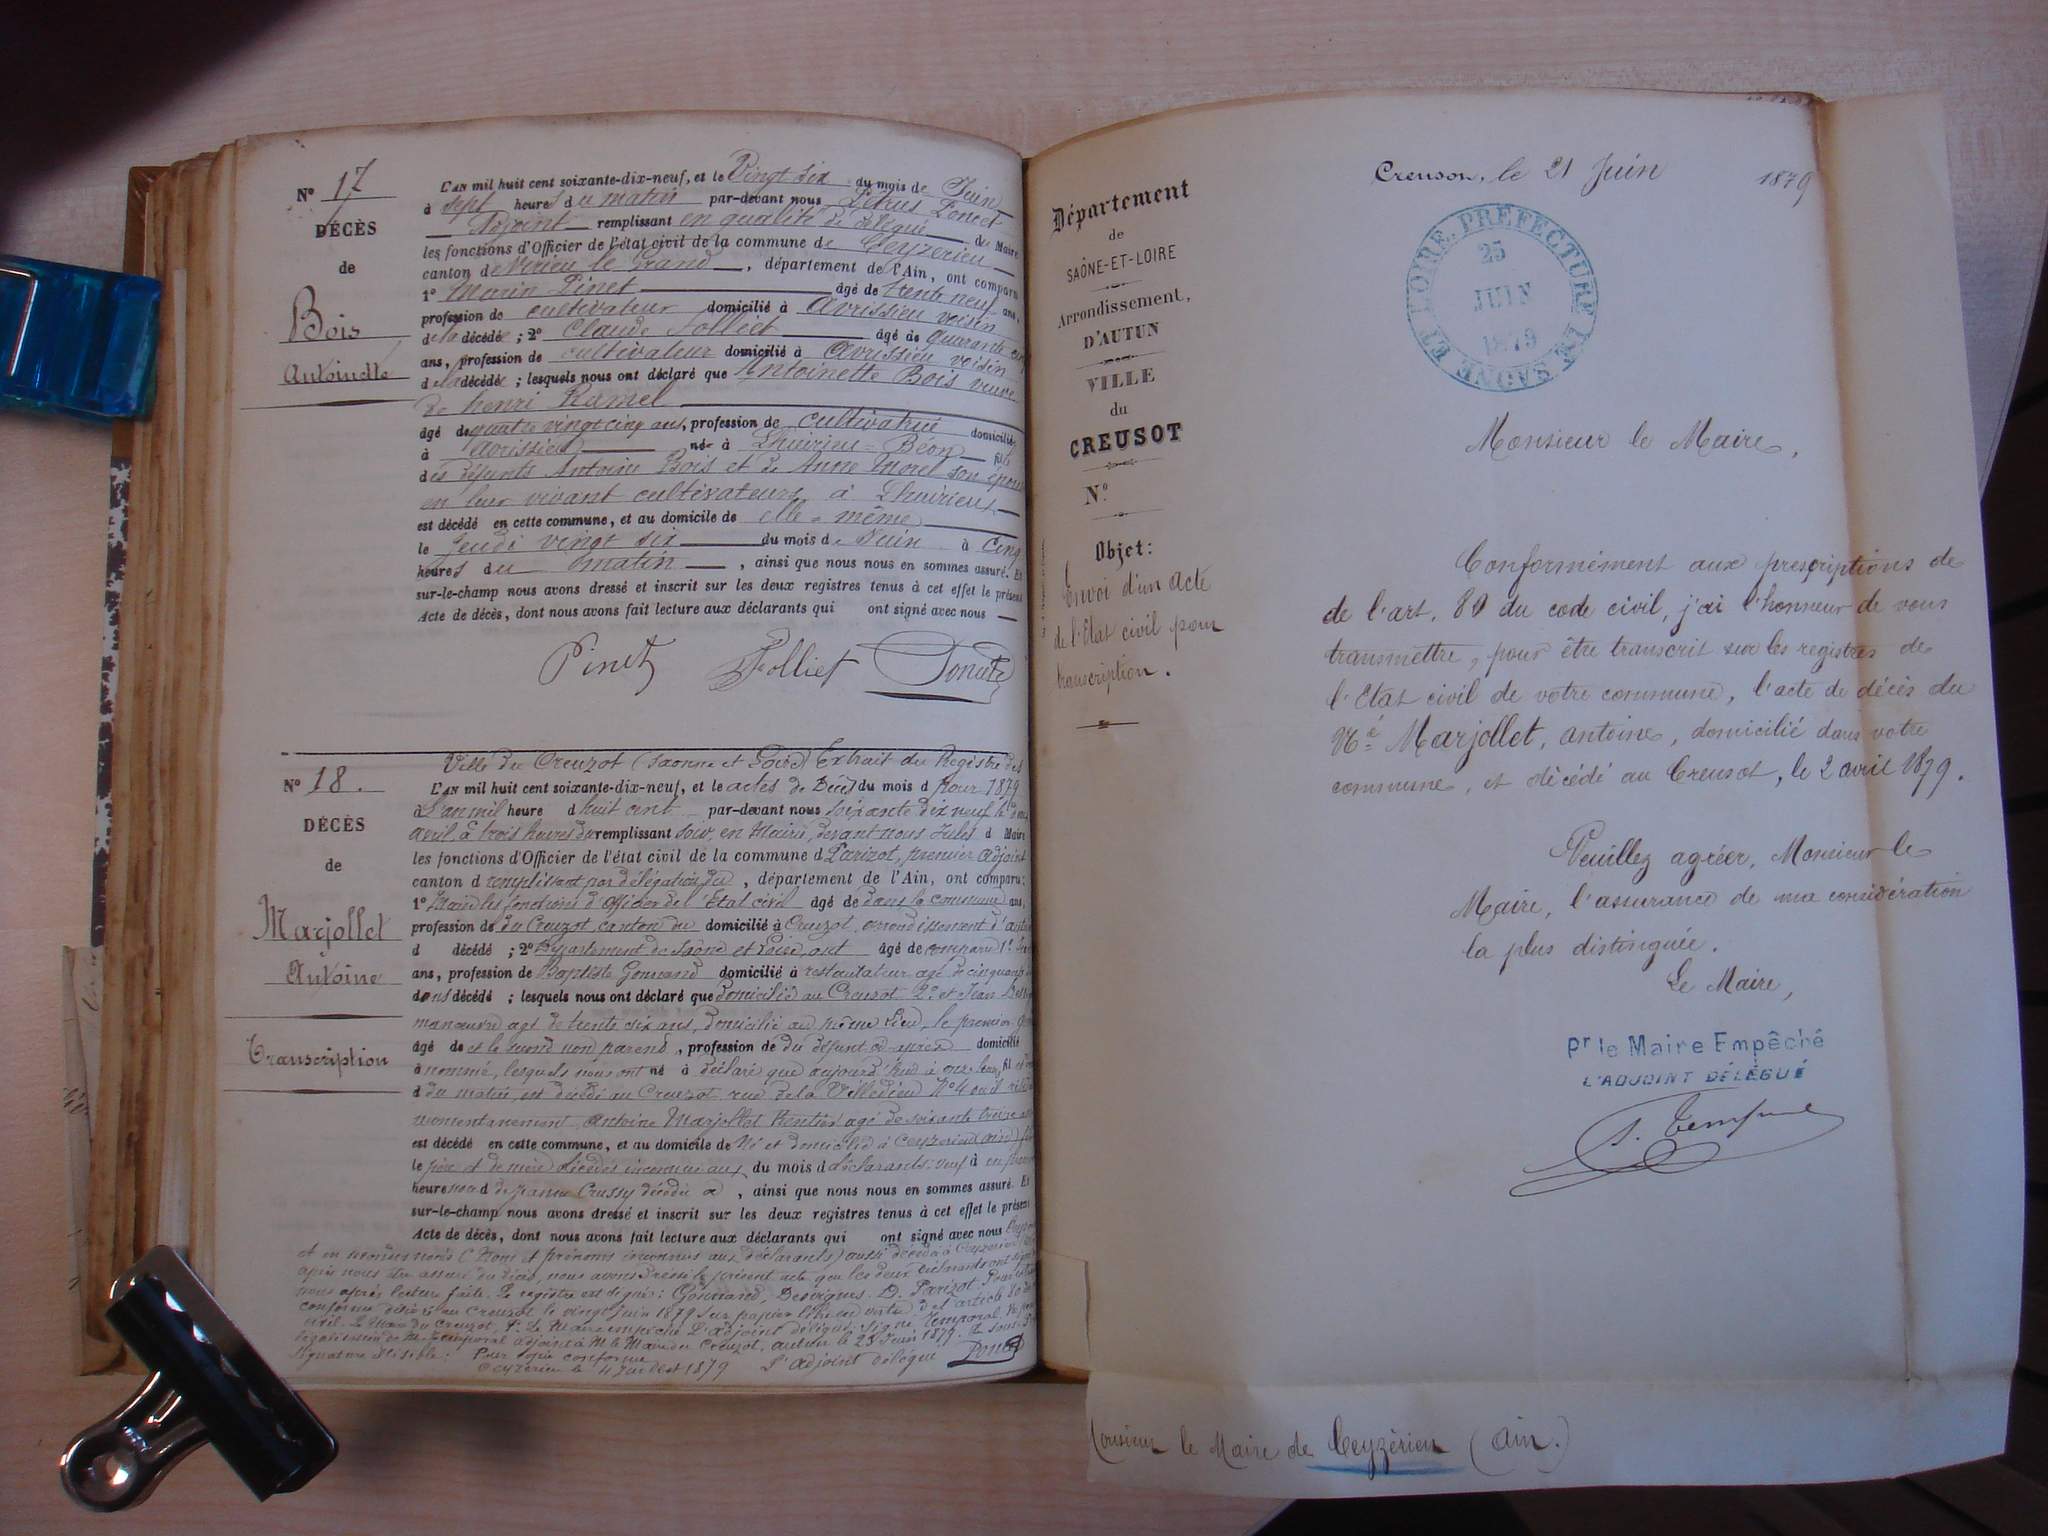 N° 17
DÉCÈS
de
Bois
Antoinette
L'AN mil huit cent soixante-dix-neuf, et le Vingt six du mois de Juin
à sept heures du matin par-devant nous Poncet
Adjoint remplissant en qualité de délégué du Maire
les fonctions d'Officier de l'état civil de la commune de Ceyzerieu
canton de Virieu le Grand, département de l'Ain, ont comparu
1° Marin Pinet âgé de trente neuf ans,
profession de cultivateur domicilié à Avrissieu voisin
de la décédée ; 2° Claude Folliet âgé de quarante cinq
ans, profession de cultivateur domicilié à Avrissieu voisin
de la décédée ; lesquels nous ont déclaré que Antoinette Bois veuve
de henri Ramel
âgé de quatre vingt cinq ans, profession de cultivatrice domicilié
à Avrissieu né à Lhuirieu = Béon fille
des défunts Antoine Bois et de Anne Morel son épouse
en leur vivant cultivateurs à Lhuirieux
est décédé en cette commune, et au domicile de elle-même
le jeudi vingt six du mois de Juin à cinq
heures du matin, ainsi que nous nous en sommes assuré. Et
sur-le-champ nous avons dressé et inscrit sur les deux registres tenus à cet effet le présent
Acte de décès, dont nous avons fait lecture aux déclarants qui ont signé avec nous
Pinet Folliet Poncet
Ville du Creuzot (Saonne et Loire) Extrait du Registre des
N° 18.
DÉCÈS
de
Marjollet
Antoine
Transcription
L'AN mil huit cent soixante-dix-neuf, et le actes de Décès du mois d pour 1879
à L'an mil heure d huit cent par-devant nous soixante dix neuf le deux
avril, à trois heures du remplissant soir, en Mairie, devant nous Jules d Maire
les fonctions d'Officier de l'état civil de la commune d Parizot, premier adjoint
canton d remplissant par délégation du, département de l'Ain, ont comparu :
1° Maire les fonctions d'Officier de l'Etat civil âgé de dans la commune ans,
profession de du Creuzot, canton du domicilié à Creuzot, arrondissement d'autun
d décédé ; 2° Département de Saône et Loire, ont âgé de comparu 1°
ans, profession de Baptiste Gonnand domicilié à restaurateur agé de cinquante
dans décédé ; lesquels nous ont déclaré que domicilié au Creuzot 2° et Jean
manœuvre agé de trente six ans, domicilié au même Lieu, le premier
âgé de et le second non parend, profession de du défunt domicilié
à nommé, lesquels nous ont né à déclaré que aujourd'hui à onze heures fil
d du matin, est décédé au Creuzot, rue de la Villedieu N° 4 où il
momentanement, Antoine Marjollet Rentier agé de soixante treize
est décédé en cette commune, et au domicile de Né et domicilié à Ceyzerieu (ain)
le père et de mère décédés inconnus aux du mois d déclarants : veuf à en
heure d de Jeanne Crussy décédée, ainsi que nous nous en sommes assuré. Et
sur-le-champ nous avons dressé et inscrit sur les deux registres tenus à cet effet le présent
Acte de décès, dont nous avons fait lecture aux déclarants qui ont signé avec nous
et en secondes noces (Nom et prénoms inconnus aux déclarants) aussi décédée à Ceyzerieu
après nous être assuré du décès, nous avons dressé le présent acte que les deux déclarants ont signé
nous après lecture faite. Le registre est signé : Gonnand, Desvignes. D. Parizot. Pour
conforme délivré au Creuzot le vingt Juin 1879 sur papier libre en vertu de l'article 80 du
civil. Le Maire du Creuzot. Pr Le Maire empêché L'adjoint délégué : signé Temporal.
légalisation de M. Temporal adjoint à M. le Maire du Creuzot, autun le 23 Juin 1879. Le sous
signature illisible. Pour copie conforme
Ceyzerieu le 4 Juillet 1879 L'adjoint délégué Poncet
Département
de
SAÔNE-ET-LOIRE
Arrondissement,
D'AUTUN
VILLE
du
CREUSOT
N°
Objet :
Envoi d'un acte
de l'Etat civil pour
transcription.
Creuson, le 21 Juin 1879
PRÉFECTURE DE SAONE ET LOIRE
25
JUIN
1879
Monsieur le Maire,
Conformément aux prescriptions de
de l'art. 80 du code civil, j'ai l'honneur de vous
transmettre, pour être transcrit sur les registres de
l'Etat civil de votre commune, l'acte de décès du
Né Marjollet, antoine, domicilié dans votre
commune, et décédé au Creusot, le 2 avril 1879.
Veuillez agréer, Monsieur le
Maire, l'assurance de ma considération
la plus distinguée.
Le Maire,
Pr le Maire Empêché
L'ADJOINT DÉLÉGUÉ
Monsieur le Maire de Ceyzérieu (Ain.)